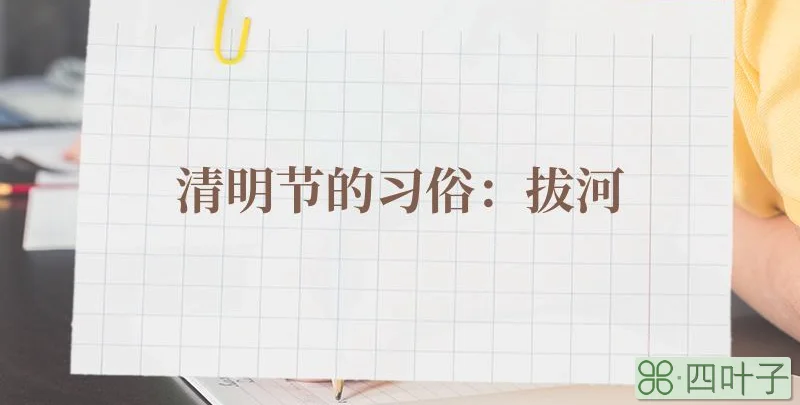 清明节的习俗：拔河
四叶子